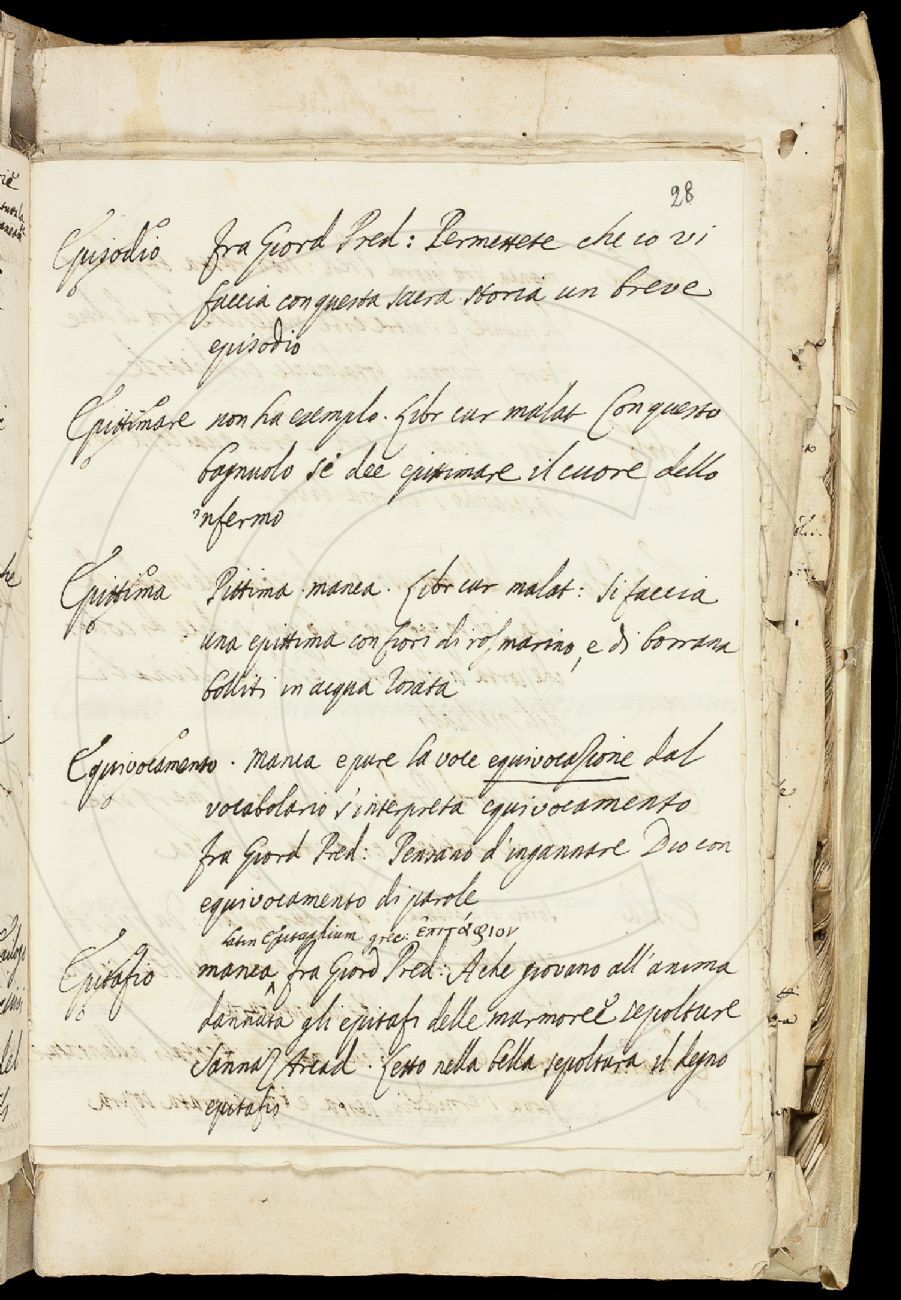 28
Episodio fra Giord Pred: Permettete che io vi
faccia con questa sacra storia un breve
episodio
Epittimare non ha esemplo. Libr cur malat Con questo
bagnuolo si dee epittimare il cuore dello
'nfermo
Epittima Pittima manca. Libr cur malat: Si faccia
una epittima con fiori di rosmarino, e di borrana
bolliti in acqua rosata
Equivocamento. manca e pure la voce equivocasione dal
vocabolario s'interpreta equivocamento
fra Giord Pred: Pensano d'ingannare Dio con
equivocamento di parole
latin Epitaphium grec: ἐπιτάφιον
Epitafio manca fra Giord Pred: A che giovano all'anima
dannata gli epitafi delle marmoree sepolture
Sannaz Arcad. Letto nella bella sepoltura il degno
epitafio